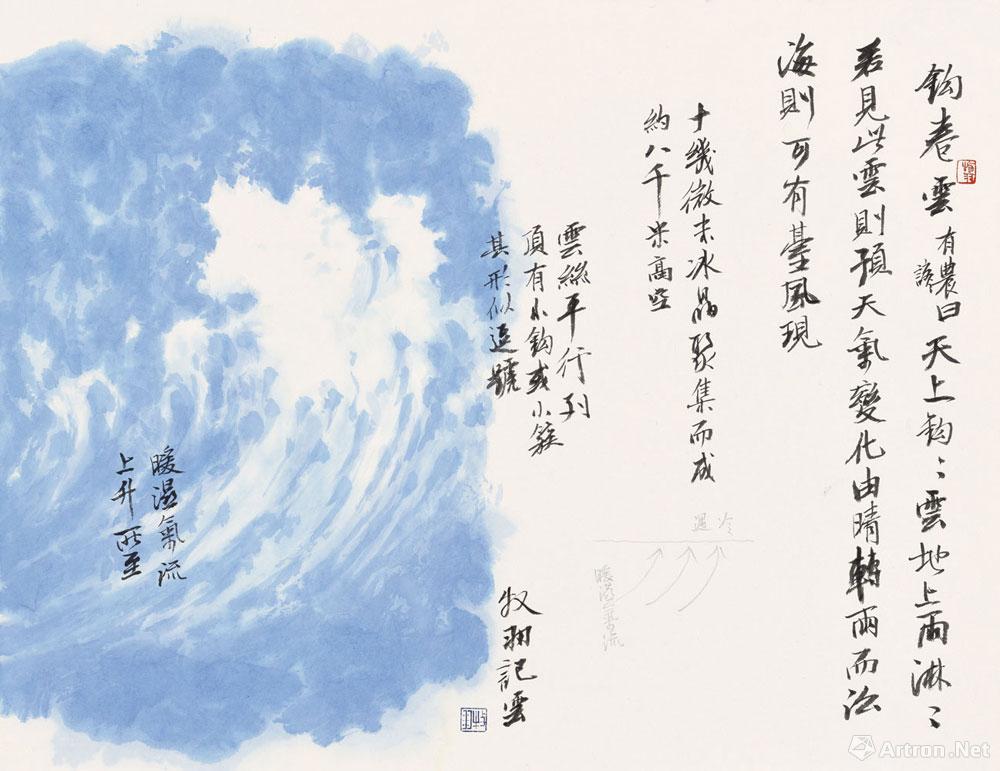 鈎卷雲有農諺曰天上鈎〻雲地上雨淋〻
若見此雲則預天氣變化由晴轉雨而沿
海則可有臺風現
十幾微米冰晶聚集而成
約八千米高空
雲絲平行列
頂有小鈎或小簇
其形似逗號
遇冷
暖濕氣流
牧羽記雲
暖濕氣流
上升所至
Artron.Net